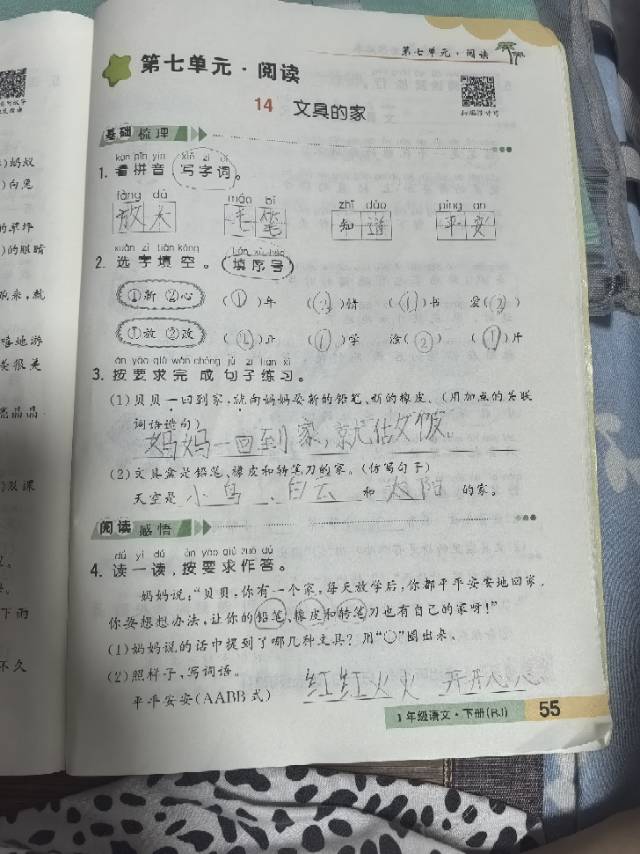 第七单元·阅读
第七单元·阅读
14 文具的家
基础 梳理
kàn pīn yīn xiě zì cí
1. 看拼音写字词。
fàng dà máo bǐ zhī dào píng ān
放大 毛笔 知道 平安
xuǎn zì tián kòng
2. 选字填空。(填序号)
①新 ②心 (①)年 (②)情 (①)书 爱(②)
①放 ②改 (②)正 (①)学 (②) (①)开
àn yāo qiú wán chéng jù zi liàn xí
3. 按要求完成句子练习。
(1)贝贝一回到家,就向妈妈要新的铅笔、新的橡皮。(用加点的关联
词语造句)
妈妈一回到家,就估女饭。
(2)文具盒是铅笔、橡皮和转笔刀的家。(仿写句子)
天空是小鸟、白云和太阳的家。
阅读 感悟
dú yi dú àn yāo qiú zuò dá
4. 读一读,按要求作答。
妈妈说:“贝贝,你有一个家,每天放学后,你都平平安安地回家。
你要想想办法,让你的铅笔、橡皮和转笔刀也有自己的家呀!”
(1)妈妈说的话中提到了哪几种文具?用“○”圈出来。
(2)照样子,写词语。
平平安安(AABB式) 红红火火 开开心心
1年级语文·下册(RJ) 55
)蚂蚁
)白兔
)的眼睛
嘻地游
亮晶晶
下雨
不久